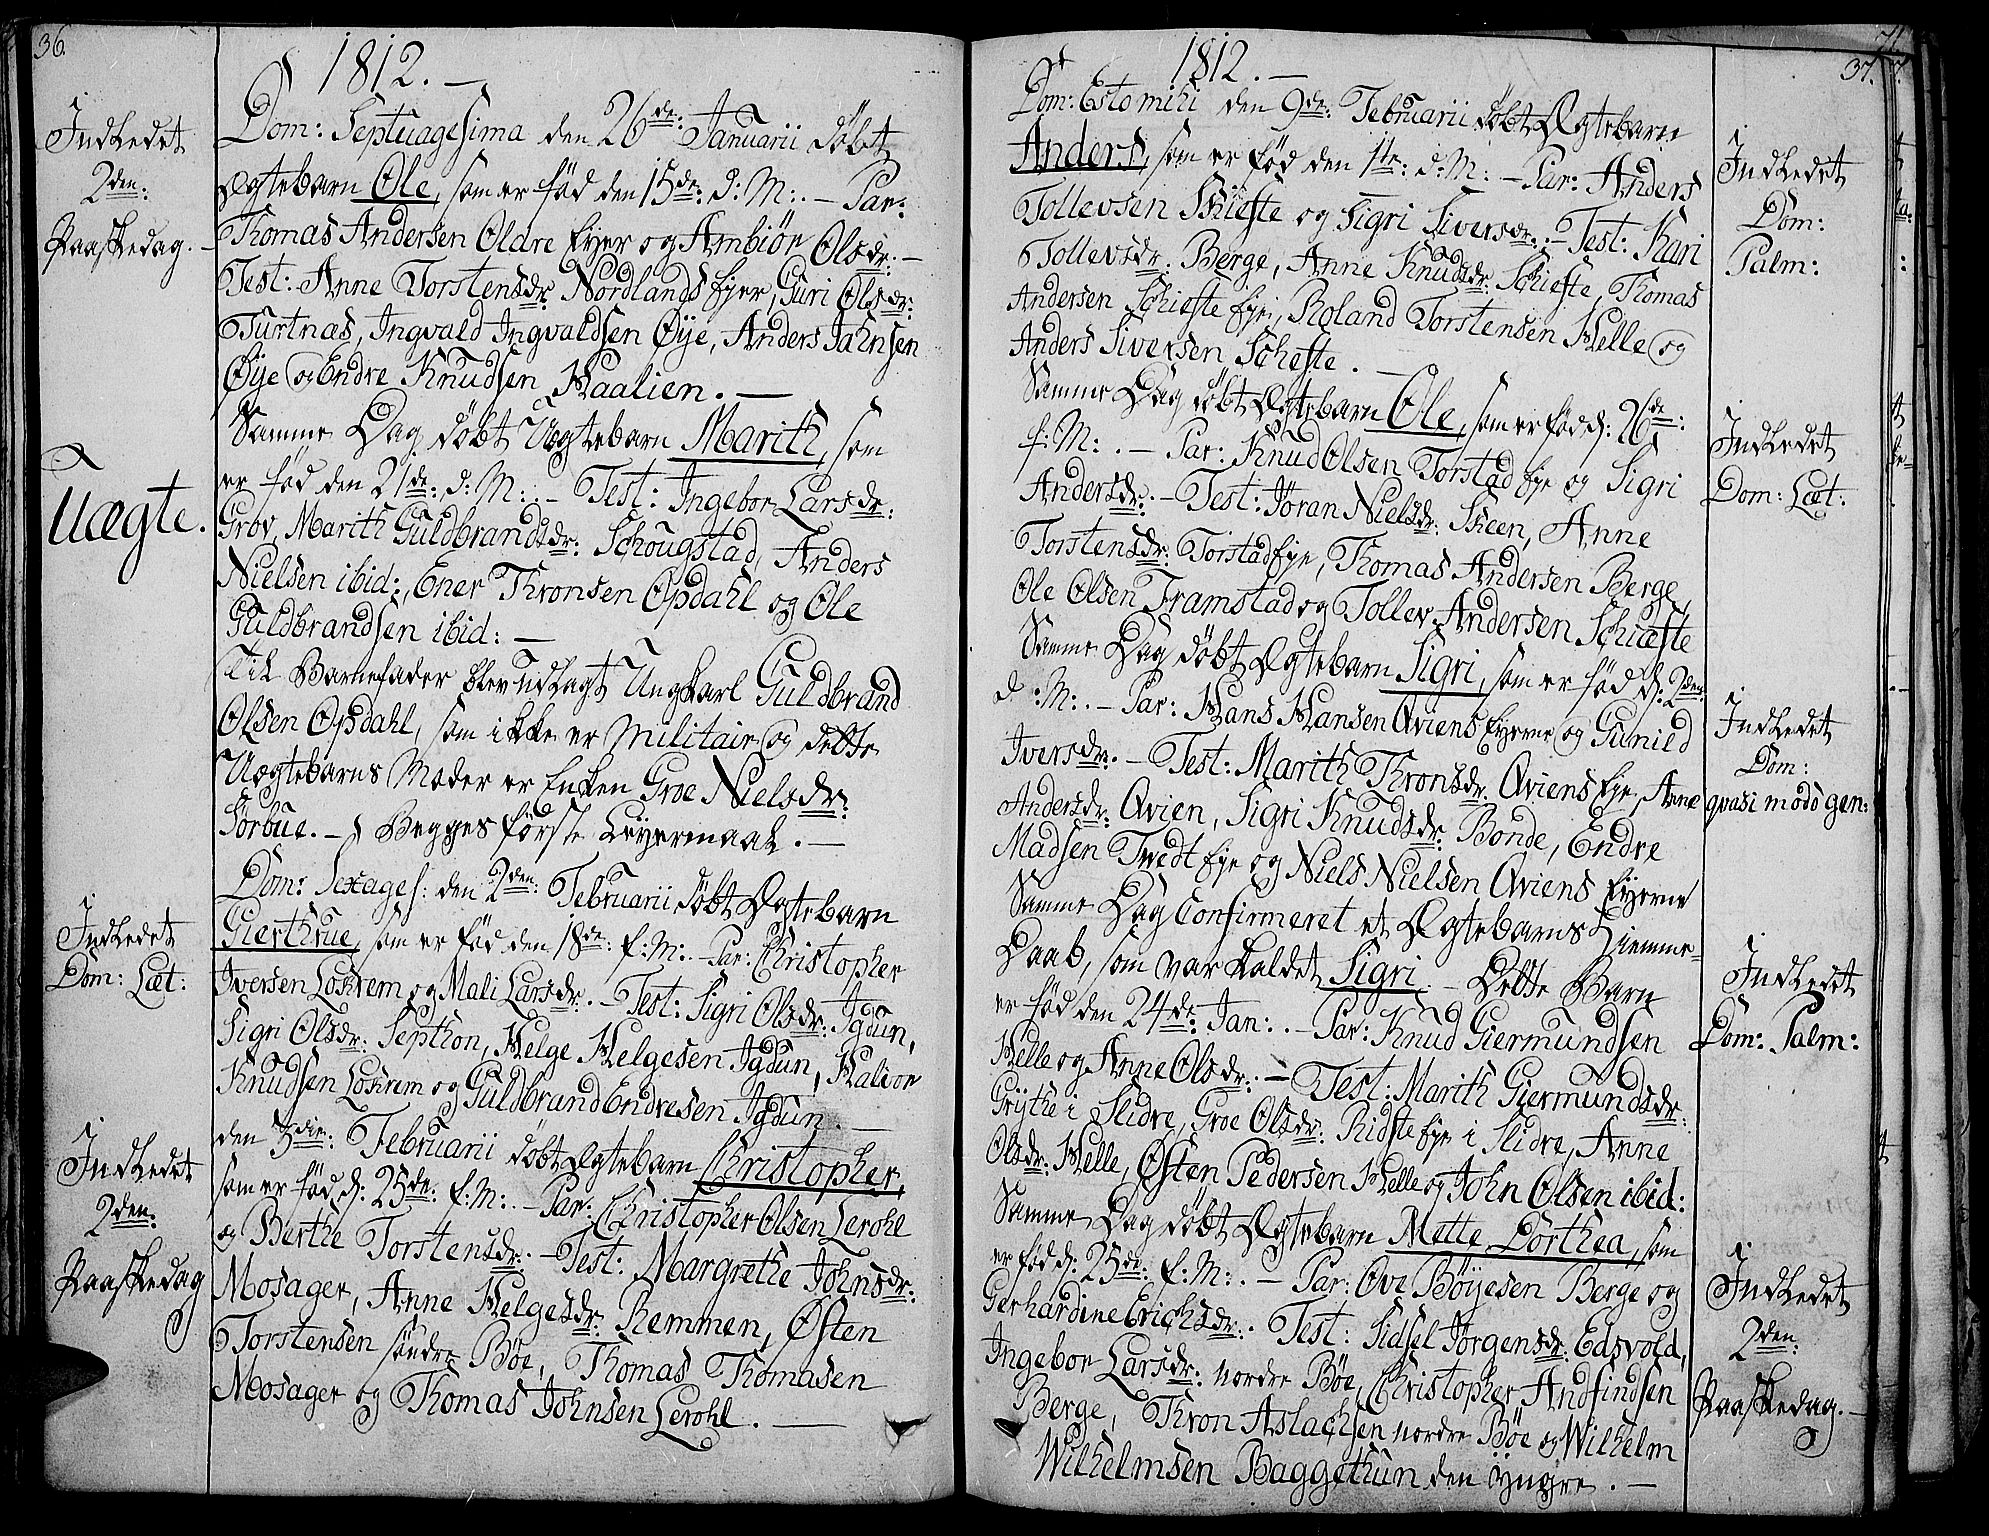 36.
1812. —
Indledet
2den:
Paaskedag. —
Dom: Septuagesima den 26de: Januarii døbt
Ægtebarn Ole, som er fød den 15de: d: M: . — Par:
Thomas Andersen Oldre Eyer og Ambiør Olsdr: —
Test: Anne Torstensdr: Nordlands Eyer, Guri Olsdr:
Turtnæs, Ingvald Ingvaldsen Øÿe, Anders Jahnsen
Øÿe og Endre Knudsen Haalien. —
Uægte.
Samme Dag døbt Uægtebarn Marith, som
er fød den 21de: d: M: . — Test: Ingebor Larsdr:
Grov, Marith Guldbrandsdr: Schougstad, Anders
Nielsen ibid:, Ener Thronsen Opdahl og Ole
Guldbrandsen ibid: —
Til Barnefader blev udlagt Ungkarl Guldbrand
Olsen Opdahl, som ikke er Militair og dette
Uægtebarns Moder er Enken Groe Nielsdr:
Sørbue. — Begges første Leyermaal. —
Indledet
Dom: Læt:
Dom: Sexages: den 2den: Februarii døbt Ægtebarn
Gierthrue, som er fød den 18de: f: M: . — Par: Christopher
Iversen Loskrem og Mali Larsdr: . — Test: Sigri Olsdr: Igdun,
Sigri Olsdr: Septhon, Helge Helgesen Igdun, Halvor
Knudsen Loskrem og Guldbrand Endresen Igdun. —
Indledet
2den:
Paaskedag
den 5die: Februarii døbt Ægtebarn Christopher,
som er fød d: 25de: f: M: . — Par: Christopher Olsen Lerohl
og Berthe Torstensdr: . — Test: Margrethe Johnsdr:
Mosager, Anne Helgesdr: Remmen, Østen
Torstensen søndre Bøe, Thomas Thomasen
Mosager og Thomas Johnsen Lerohl. —
37.
1812. —
Dom: Esto mihi den 9de: Februarii døbt Ægtebarn
Anders, som er fød den 1te: d: M: — Par: Anders
Tollevsen Schiefte og Sigri Siversdr: . — Test: Kari
Tollevsdr: Berge, Anne Knudsdr: Schiefte, Thomas
Andersen Schiefte Eye, Roland Torstensen Helle og
Anders Siversen Schefte. —
Indledet
Dom:
Palm:
Samme Dag døbt Ægtebarn Ole, som er fød d: 26de:
f: M: . — Par: Knud Olsen Torstad Eye og Sigri
Andersdr: . — Test: Jøran Nielsdr: Skeen, Anne
Torstensdr: Torstad Eye, Thomas Andersen Berge,
Ole Olsen Framstad og Tollev Andersen Schiefte
Indledet
Dom: Læt:
Samme Dag døbt Ægtebarn Sigri, som er fød d: 2den:
d: M: . — Par: Hans Hansen Qviens Eyerne og Gunild
Iversdr: . — Test: Marith Thronsdr: Qviens Eye, Anne
Andersdr: Qvien, Sigri Knudsdr: Bonde, Endre
Madsen Tvedt Eye og Niels Nielsen Qviens Eyerne
Indledet
Dom:
qvasi modo gen:
Samme Dag Confirmeret et Ægtebarns Hiemme-
Daab, som var kaldet Sigri. — Dette Barn
er fød den 24de: Jan: . — Par: Knud Giermundsen
Helle og Anne Olsdr: . — Test: Marith Giermundsdr:
Grÿthe i Slidre, Groe Olsdr: Ridste Eye i Slidre, Anne
Olsdr: Helle, Østen Pedersen Helle og John Olsen ibid:
Indledet
Dom: Palm:
Samme Dag døbt Ægtebarn Mette Dorthea, som
er fød d: 25de: f: M: . — Par: Ove Böÿesen Berge og
Gerhardine Erichsdr: . Test: Sidsel Jørgensdr: Edsvold,
Ingebor Larsdr: nordre Bøe, Christopher Andfindsen
Berge, Thron Aslachsen nordre Bøe og Wilhelm
Wilhelmsen Baggethun den yngre. —
Indledet
2den:
Paaskedag. —